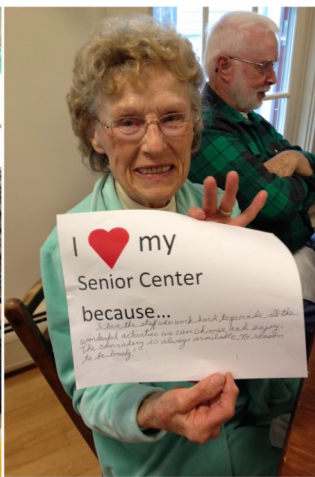 I ❤ my
Senior Center
because...
I love the staff who work hard to provide all the
wonderful activities we can choose and enjoy.
The comradery is always available. No reason
to be lonely!